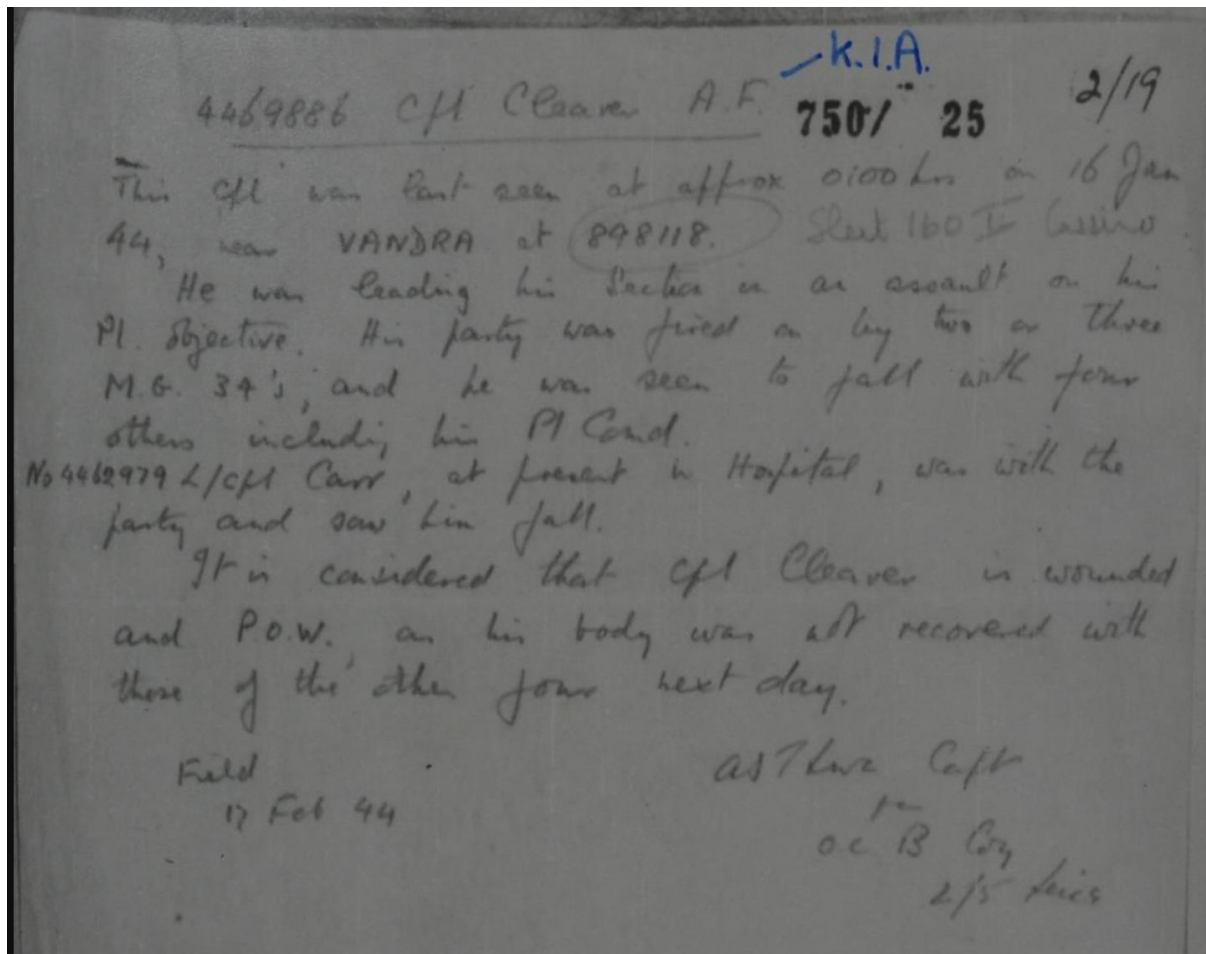 K.I.A.
4469886 Cpl Cleaver A.F. 750/ 25 2/19
This Cpl was last seen at approx 0100 hrs on 16 Jan
44, near VANDRA at 898118. Sheet 160 II Cassino.
He was leading his Section in an assault on his
Pl. objective. His party was fired on by two or three
M.G. 34's, and he was seen to fall with four
others including his Pl Comd.
No 4462979 L/Cpl Carr, at present in Hospital, was with the
party and saw him fall.
It is considered that Cpl Cleaver is wounded
and P.O.W., as his body was not recovered with
those of the other four next day.
Field
17 Feb 44
Capt
for
OC B Coy
2/5 Leics